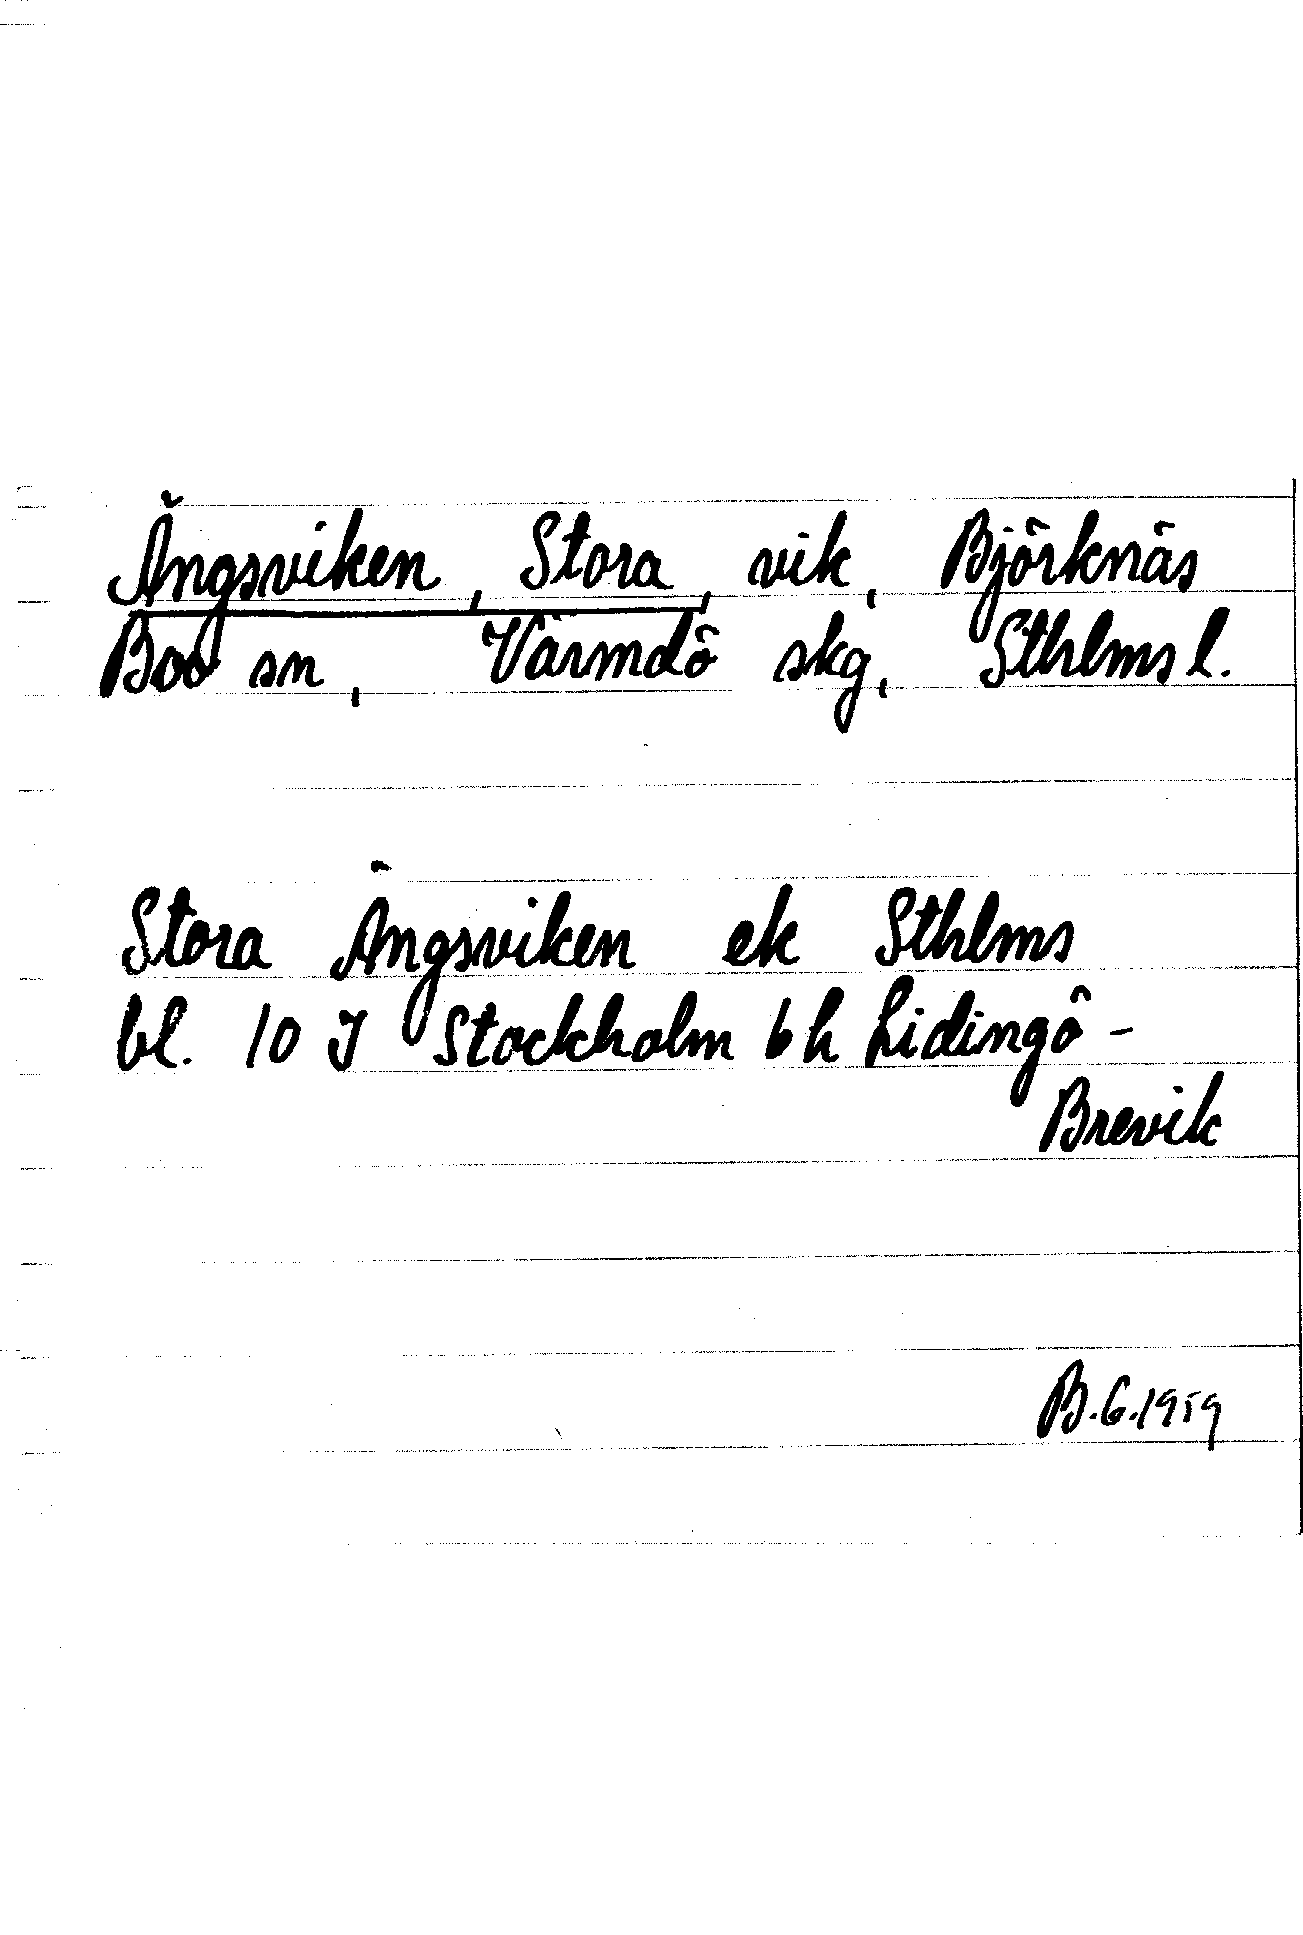 Ängsviken, Stora, vik, Björknäs
Boo sn, Värmdö skg, Sthlms l.
Stora Ängsviken ek Sthlms
bl. 10 J Stockholm 6 h Lidingö-
Brevik
B.G.1959